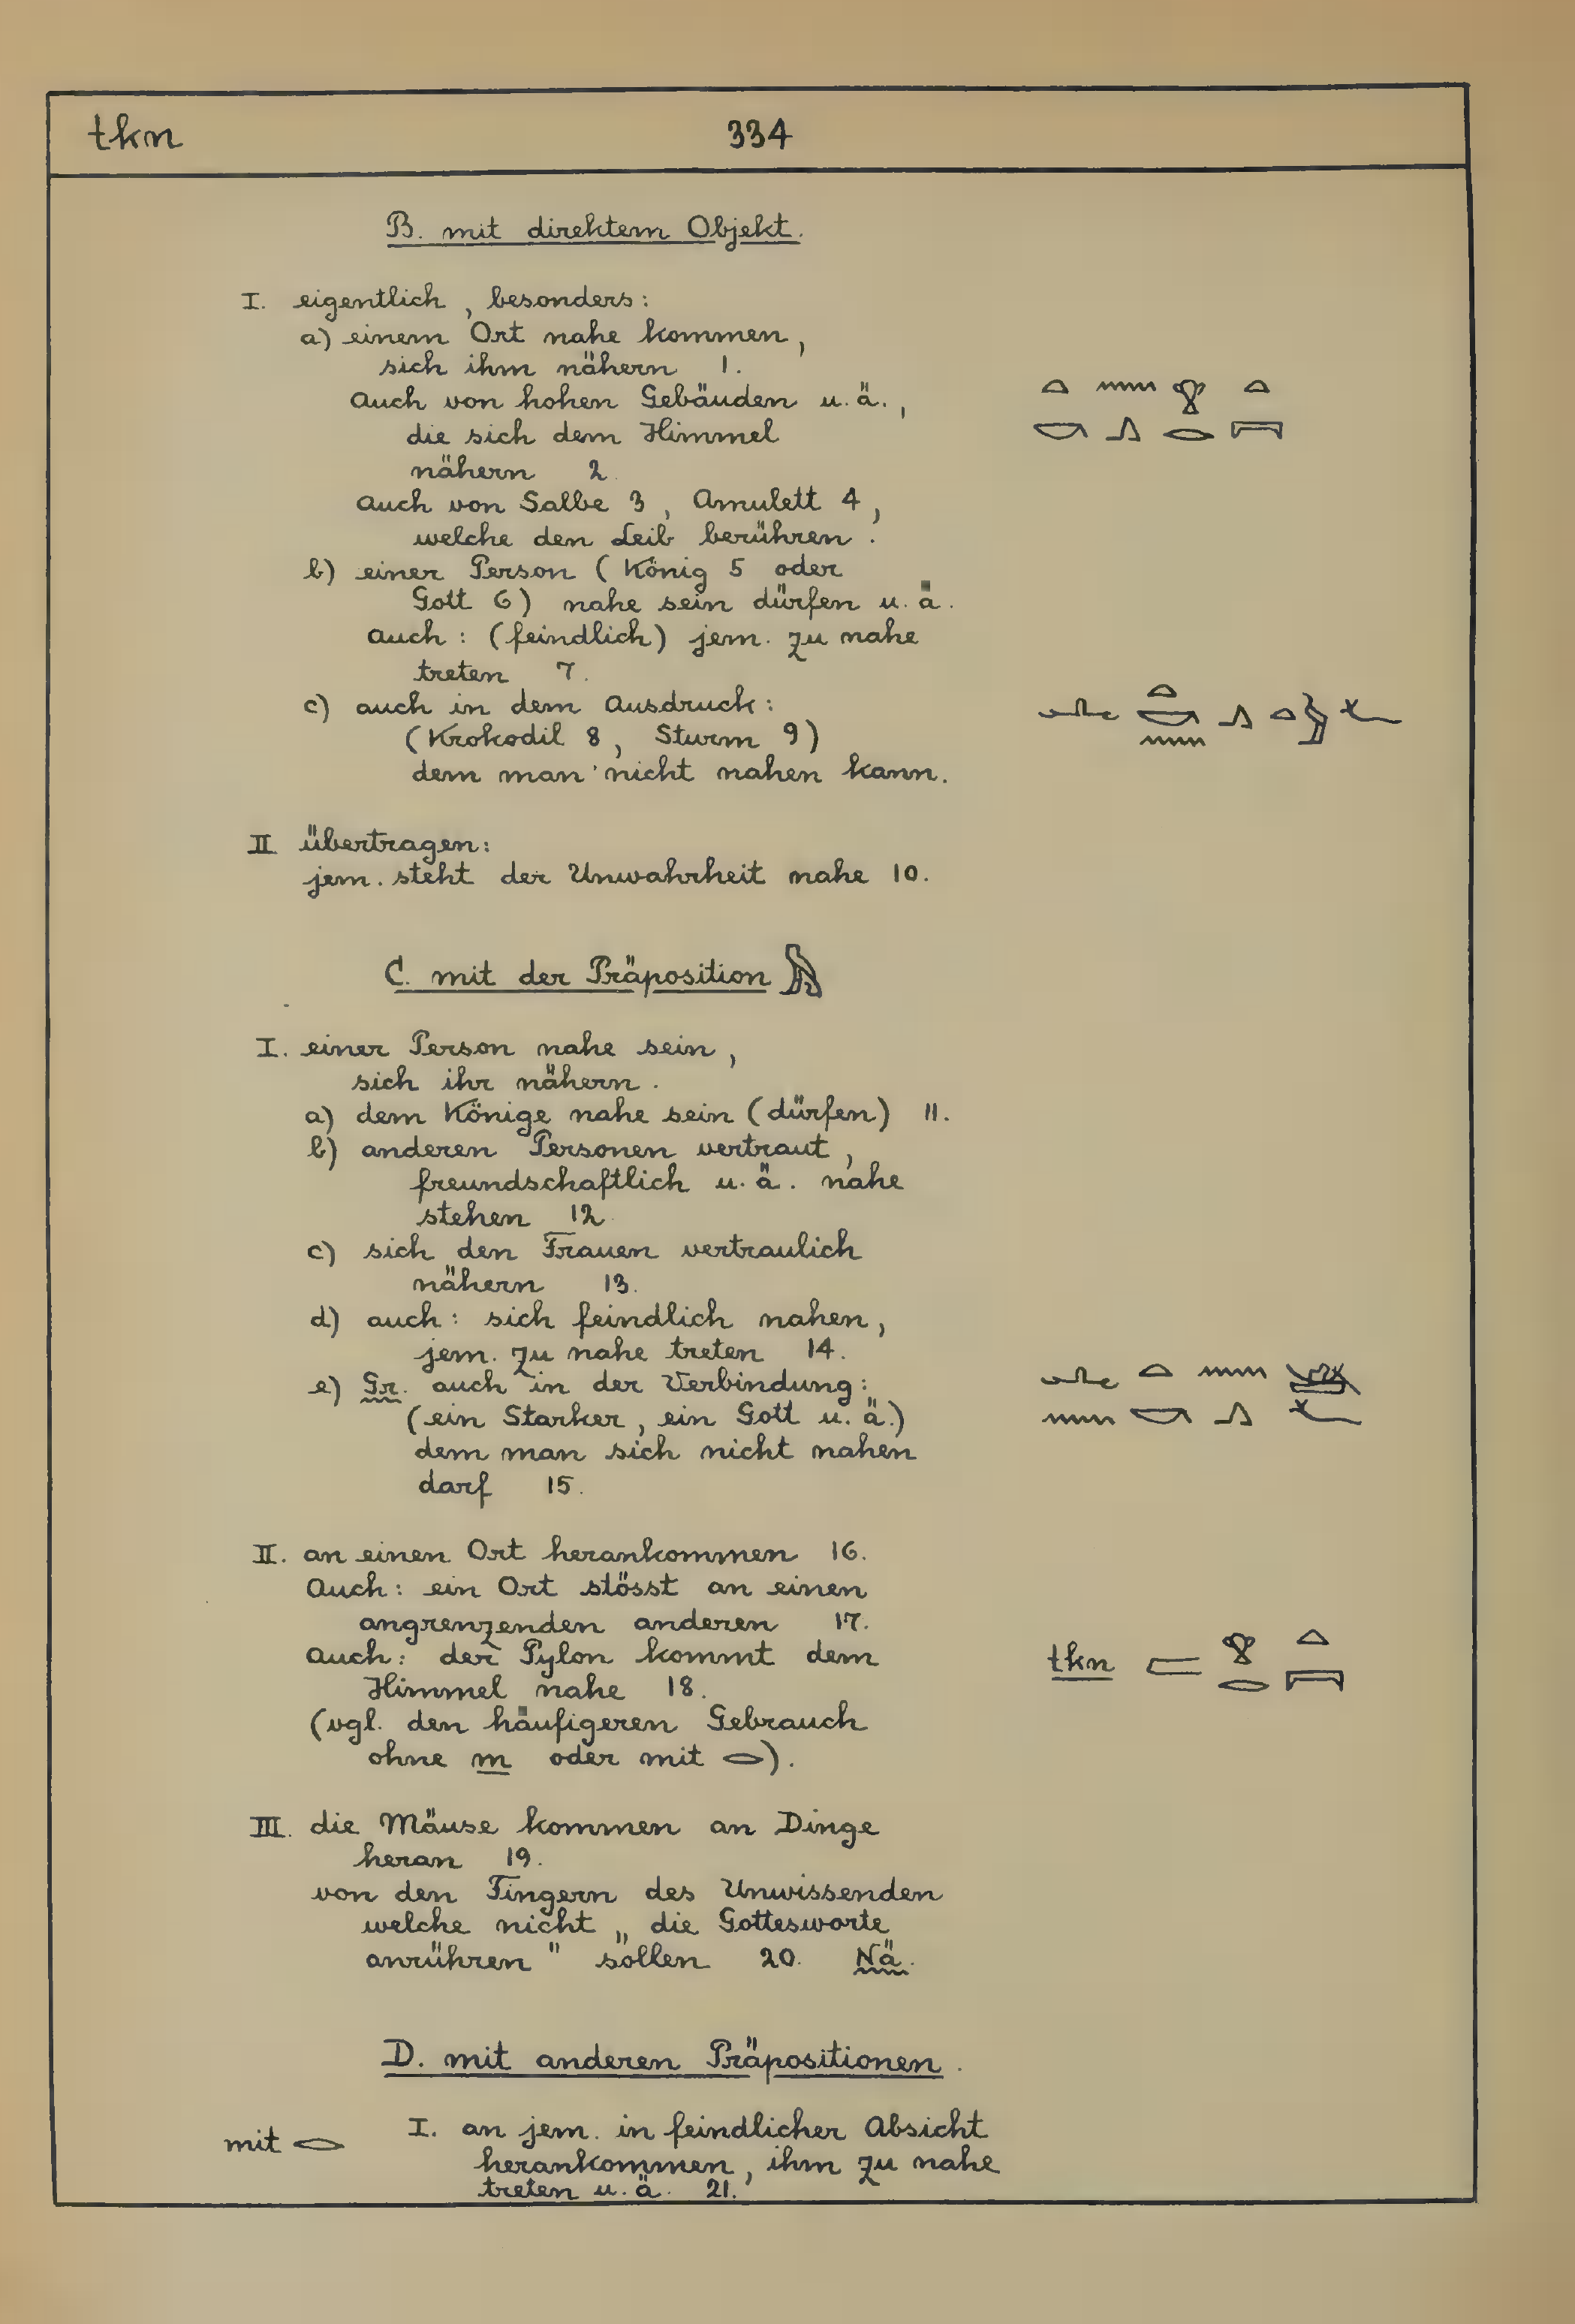 tkn 334
B. mit direktem Objekt.
I. eigentlich, besonders:
a) einem Ort nahe kommen,
sich ihm nähern 1.
Auch von hohen Gebäuden u.ä.,
die sich dem Himmel
nähern 2.
Auch von Salbe 3, Amulett 4,
welche den Leib berühren.
b) einer Person (König 5 oder
Gott 6) nahe sein dürfen u.ä.
Auch: (feindlich) jem. zu nahe
treten 7.
c) auch in dem Ausdruck:
(Krokodil 8, Sturm 9)
dem man nicht nahen kann.
II übertragen:
jem. steht der Unwahrheit nahe 10.
C. mit der Präposition 𓅓
I. einer Person nahe sein,
sich ihr nähern.
a) dem Könige nahe sein (dürfen) 11.
b) anderen Personen vertraut,
freundschaftlich u.ä. nahe
stehen 12.
c) sich den Frauen vertraulich
nähern 13.
d) auch: sich feindlich nahen,
jem. zu nahe treten 14.
e) Gr. auch in der Verbindung:
(ein Starker, ein Gott u.ä.)
dem man sich nicht nahen
darf 15.
II. an einen Ort herankommen 16.
Auch: ein Ort stösst an einen
angrenzenden anderen 17.
Auch: der Pylon kommt dem
Himmel nahe 18. tkn
(vgl. den häufigeren Gebrauch
ohne m oder mit 𓂋).
III. die Mäuse kommen an Dinge
heran 19.
von den Fingern des Unwissenden
welche nicht „die Gottesworte
anrühren" sollen 20. Nä.
D. mit anderen Präpositionen.
mit 𓂋 I. an jem. in feindlicher Absicht
herankommen, ihm zu nahe
treten u.ä. 21.